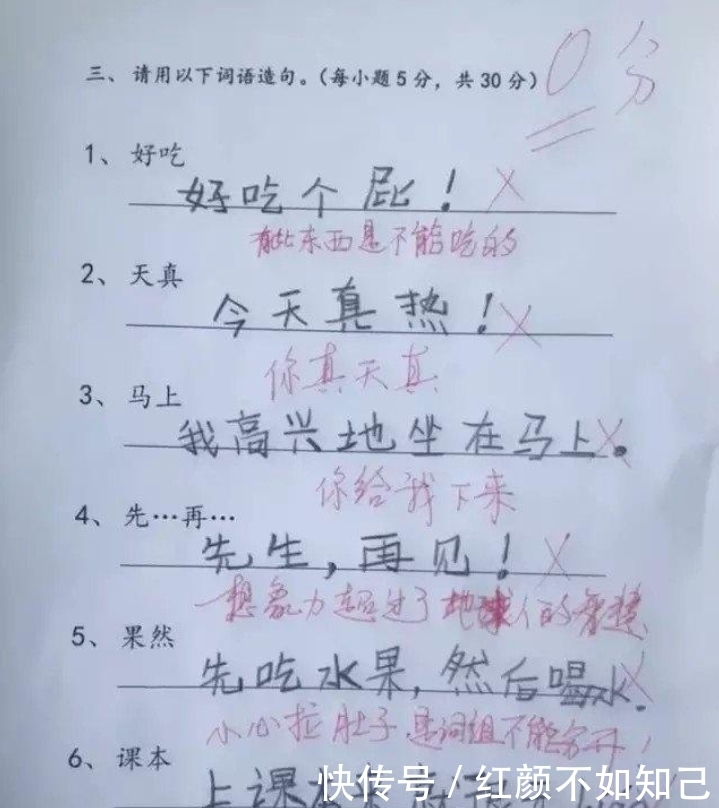 三、请用以下词语造句。(每小题5分，共30分)
0分
1、好吃
好吃个屁！
有些东西是不能吃的
2、天真
今天真热！
你真天真
3、马上
我高兴地坐在马上。
你给我下来
4、先…再…
先生，再见！
想象力超过了地球人的
5、果然
先吃水果，然后喝水.
小心拉肚子.是词组不能分开！
6、课本
上课
快传号 / 红颜不如知己